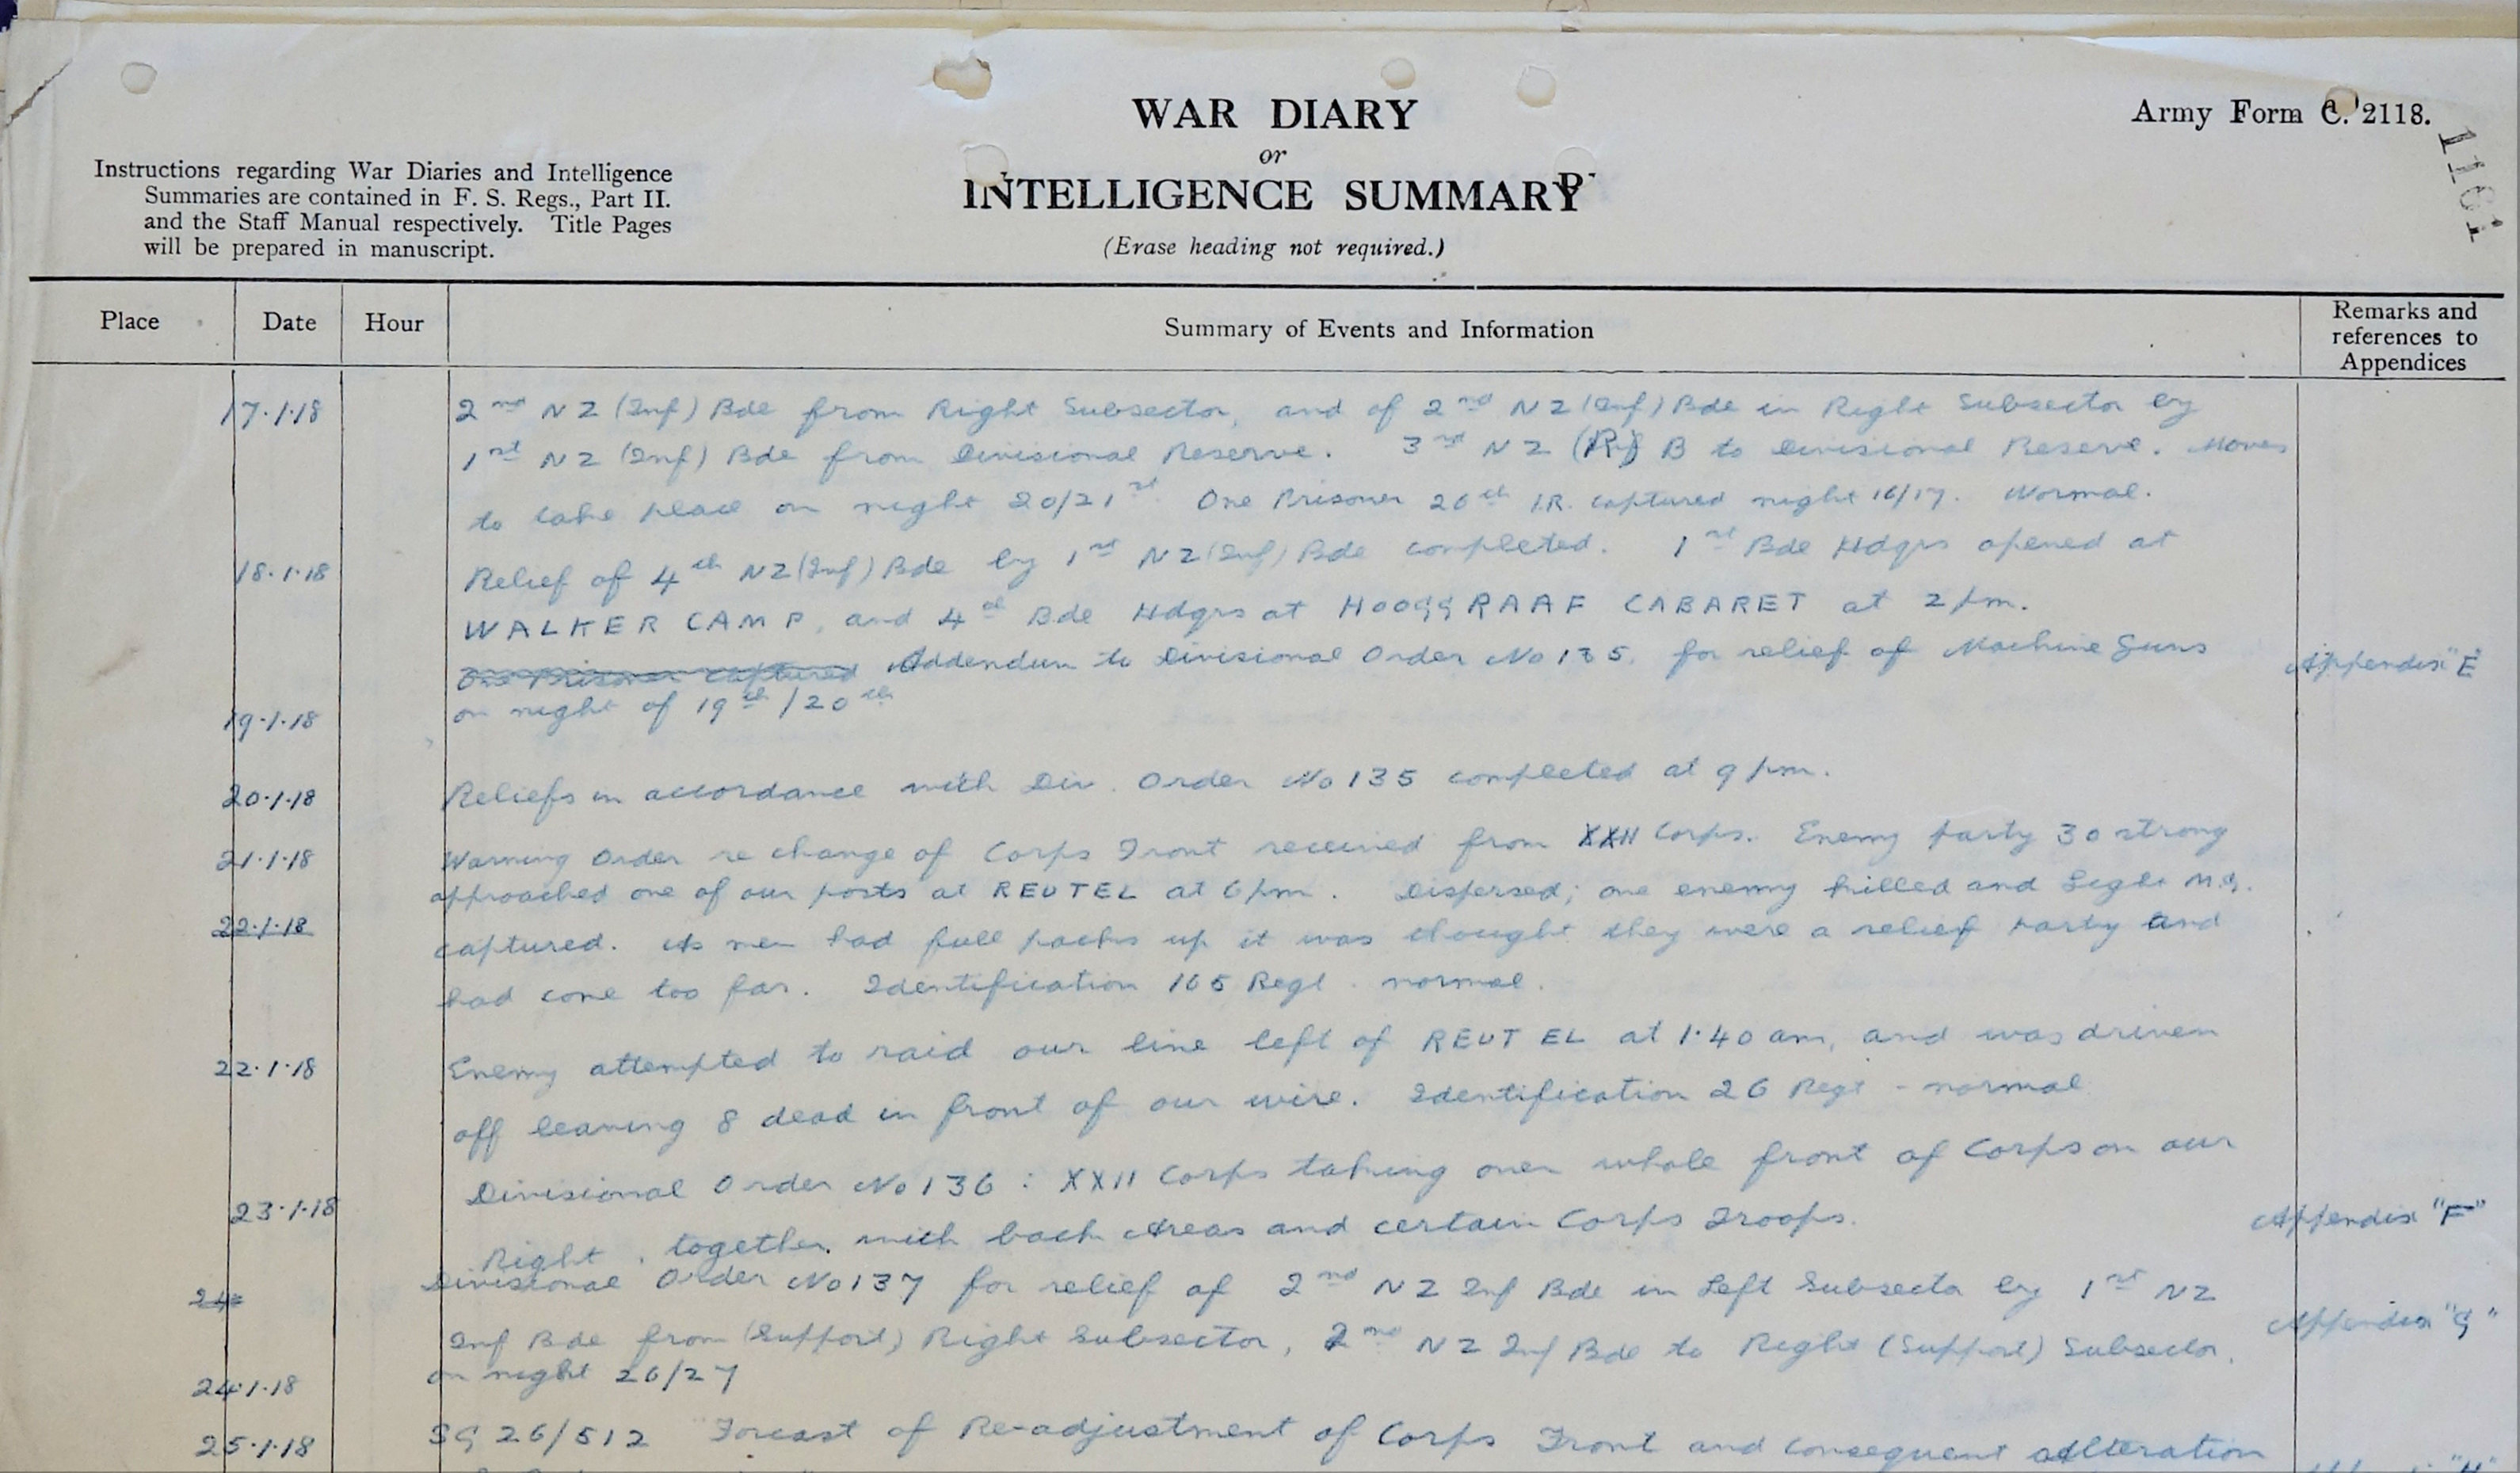 WAR DIARY
or
INTELLIGENCE SUMMARY
(Erase heading not required.)
Army Form C. 2118.
1161
Instructions regarding War Diaries and Intelligence
Summaries are contained in F. S. Regs., Part II.
and the Staff Manual respectively. Title Pages
will be prepared in manuscript.
Place Date Hour Summary of Events and Information Remarks and references to Appendices
17.1.18 2nd NZ (Inf) Bde from Right Subsector, and of 2nd NZ (Inf) Bde in Right Subsector by
1st NZ (Inf) Bde from Divisional Reserve. 3rd NZ (R) B to Divisional Reserve. Moves
to take place on night 20/21st. One Prisoner 26th I.R. captured night 16/17. Normal.
18.1.18 Relief of 4th NZ (Inf) Bde by 1st NZ (Inf) Bde completed. 1st Bde Hdqrs opened at
WALKER CAMP, and 4th Bde Hdqrs at HOOGGRAAF CABARET at 2 pm.
One Prisoner captured Addendum to Divisional Order No 135. for relief of Machine Guns Appendix "E"
19.1.18 on night of 19th/20th
20.1.18 Reliefs in accordance with Div. Order No 135 completed at 9 pm.
21.1.18 Warning Order re change of Corps Front received from XXII Corps. Enemy party 30 strong
approached one of our posts at REUTEL at 6 pm. Dispersed; one enemy killed and Light M.G.
22.1.18 captured. As men had full packs up it was thought they were a relief party and
had come too far. Identification 165 Regt. normal.
22.1.18 Enemy attempted to raid our line left of REUTEL at 1.40 am, and was driven
off leaving 8 dead in front of our wire. Identification 26 Regt - normal
23.1.18 Divisional Order No 136 : XXII Corps taking over whole front of Corps on our
Right, together with back Areas and certain Corps Troops. Appendix "F"
24 Divisional Order No 137 for relief of 2nd NZ Inf Bde in Left Subsector by 1st NZ
Inf Bde from (Support) Right Subsector, 2nd NZ Inf Bde to Right (Support) Subsector. Appendix "G"
24.1.18 on night 26/27
25.1.18 SG 26/512 "Forcast of Re-adjustment of Corps Front and consequent alteration